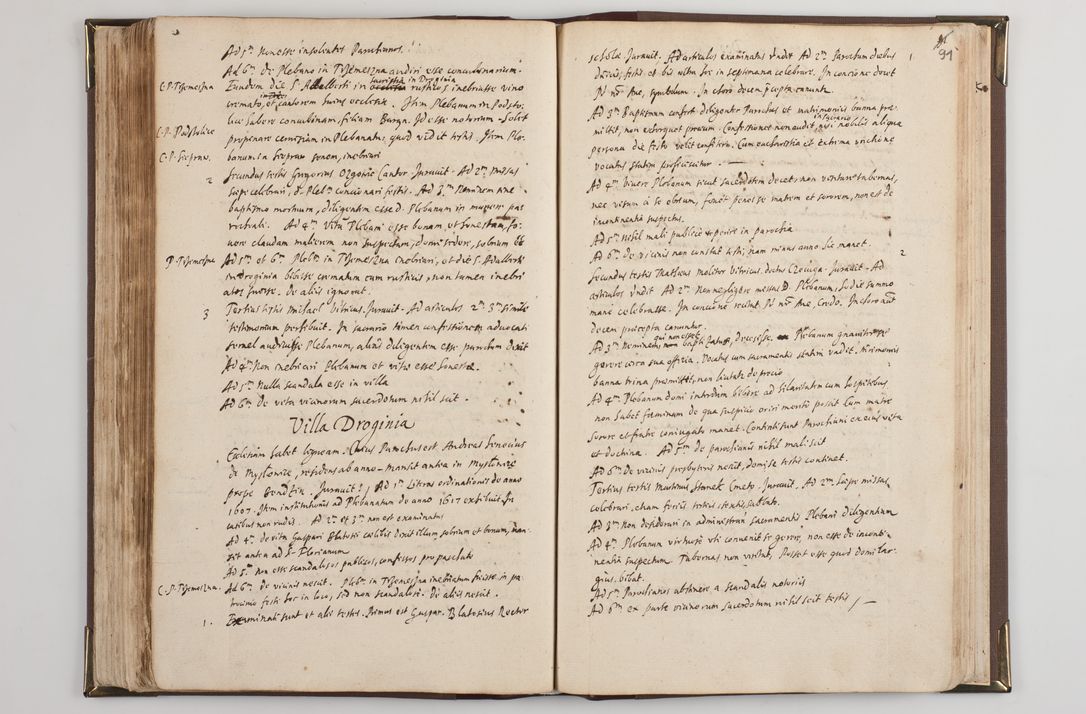 Ad 5m non esse insolentes Parochianos.
Ad 6m de Plebano in Trzemeszna audiri esse concubinarium.
C.P. Trzemeszna Eundem die S. Adalberti in Droginia rusticos inebriasse vino
cremato, et cantorem huius ecclesiae. Item Plebanum in Podsto-
C.P. Podstolice lice habere concubinam, filiam Burgr. Id esse notorium. Solet
propinare cerevisiam in Plebanatu, quod vidit testis. Item Ple-
C.P. Sieprav. banum in Sieprav senem, inebriari
2 Secundus testis Gregorius Ozgonie Cantor Juravit. Ad 2m missas
saepe celebrari, d. Plebm concionari festis. Ad 3m Neminem sine
baptismo mortuum, diligentem esse D. Plebanum in munere par
rochiali. Ad 4m vitam Plebani esse bonam, et honestam, fo-
vere claudam mulierem non suspectam, domi sedere, sobrium esse
P. Trzemeszna Ad 5m et 6m Plebm in Trzemeszna inebriari, et die S. Adalberti
in Droginia bibisse crematum cum rusticis, non tamen inebri
atos fuisse. De aliis ignorat.
3 Tertius testis Michael Vitricus. Juravit. Ad articulos 2m 3m simile
testimonium perhibuit. In sacrario tamen confessionem advocati
semel audivisse Plebanum, aliud diligentem esse parochum dixit
Ad 4m Non inebriari Plebanum et vitae esse honestae.
Ad 5m Nulla scandala esse in villa
Ad 6m De vita vicinorum sacerdotum nihil scit.
Villa Droginia
Ecclesiam habet ligneam. Cuius Parochus est Andreas
de Myslowice, residens ab anno mansit antea in Myslowice
prope Bendzin. Juravit. Ad 1m Literas ordinationis de anno
1607. Item institutionis ad Plebanatum de anno 1617 exhibuit. In
casibus non rudis. Ad 2m et 3m non est examinatus
Ad 4m de vita Gaspari dixit illum sobrium et bonum, man-
sit antea ad S. Florianum
Ad 5m non esse scandalosos publicos, confessos pro paschate
C.P. Trzemeszna. Ad 6m De vicinis nescit. Plebm in Trzemeszna inebriatum fuisse in pa-
trocinio festi hoc in loco, sed non scandalose. De aliis nescit.
1. Examinati sunt et alii testes. Primus est Gaspar Blatosius Rector
94
scholae Juravit. Ad articulos examinatus vndit Ad 2m Parochum diebus
1
festis, et bis ultra fre in septimana celebrare. In concione docet
Pr nr Ave, symbolum. In choro decem praecepta canunt.
Ad 3m Baptismum confert diligenter Parochus et matrimoniis banna prae-
mittit, non extorquet pretium. Confessiones non audit in sacrario nisi nobilis aliqua
persona die festo velit confiteri. Cum eucharistia et extrema unctione
vocatus statim proficiscitur.
Ad 4m Vivere Plebanum sicut sacerdotem decet, non venture tabernas,
nec visum a se ebrium, fovet penes se matrem et sororem, non est de
incontinentia suspectus.
Ad 5m Nihil mali publice reperire in parochia
Ad 6m De vicinis non constat testi, nam minus anno hic manet.
2
Secundus testis Matthaeus molitor Vitricus dictus Czeciuga. Juravit. Ad
articulos vndit Ad 2m Non negligere missas D. Plebanum, hodie summo
mane celebrasse. In concione recitat Pr nr Ave, Credo. In choro aut
decem praecepta canuntur.
Ad 3m Neminem, qui non esset baptizatus, decessisse. Plebanum gnaviter se
gerere circa sua officia. Vocatus cum sacramentis statim vadit. Matrimoniis
banna trina praemittit, non licitat de precio
Ad 4m Plebanum domi interdum bibere ad hilaritatem cum hospitibus
non habet foeminam de qua suspicio oriri merito possit Cum matre
sorore et fratre coniugato manet. Contenti sunt Parochiani ex eius vita
et doctrina. Ad 5m de parochianis nihil mali scit
Ad 6m De vicinis presbyteris nescit, domi se testis continet.
Tertius testis Martinus Stanek Cmeto. Juravit. Ad 2m Saepe missas
celebrari, etiam feriis tertiis, sextis, sabbato.
Ad 3m Non desiderari in administran. sacramentis Plebani diligentiam
Ad 4m Plebanum virtuose uti convenit se gerere, non esse de inconti-
nentia suspectum. Tabernas non visitat, Posset esse quod domi lar-
gius bibat.
Ad 5m Parochianos abstinere a scandalis notoriis
Ad 6m ex parte vicinorum sacerdotum nihil scit testis